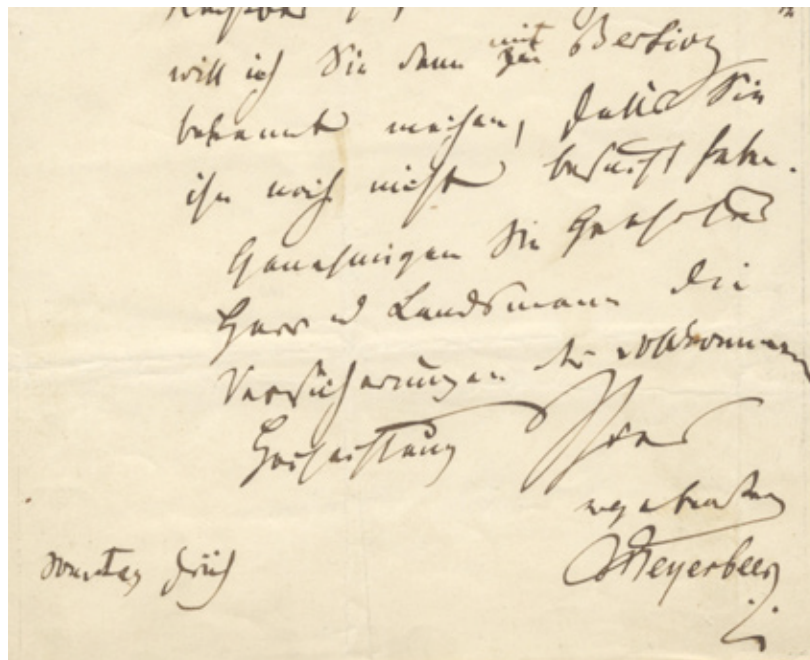 will ich Sie dann mit Berlioz
bekannt machen, falls Sie
ihn noch nicht besucht haben.
Genehmigen Sie Geehrter
Herr u Landsmann die
Versicherungen der vollkommnen
Hochachtung Ihres
ergebensten
Meyerbeer
Sonntag früh